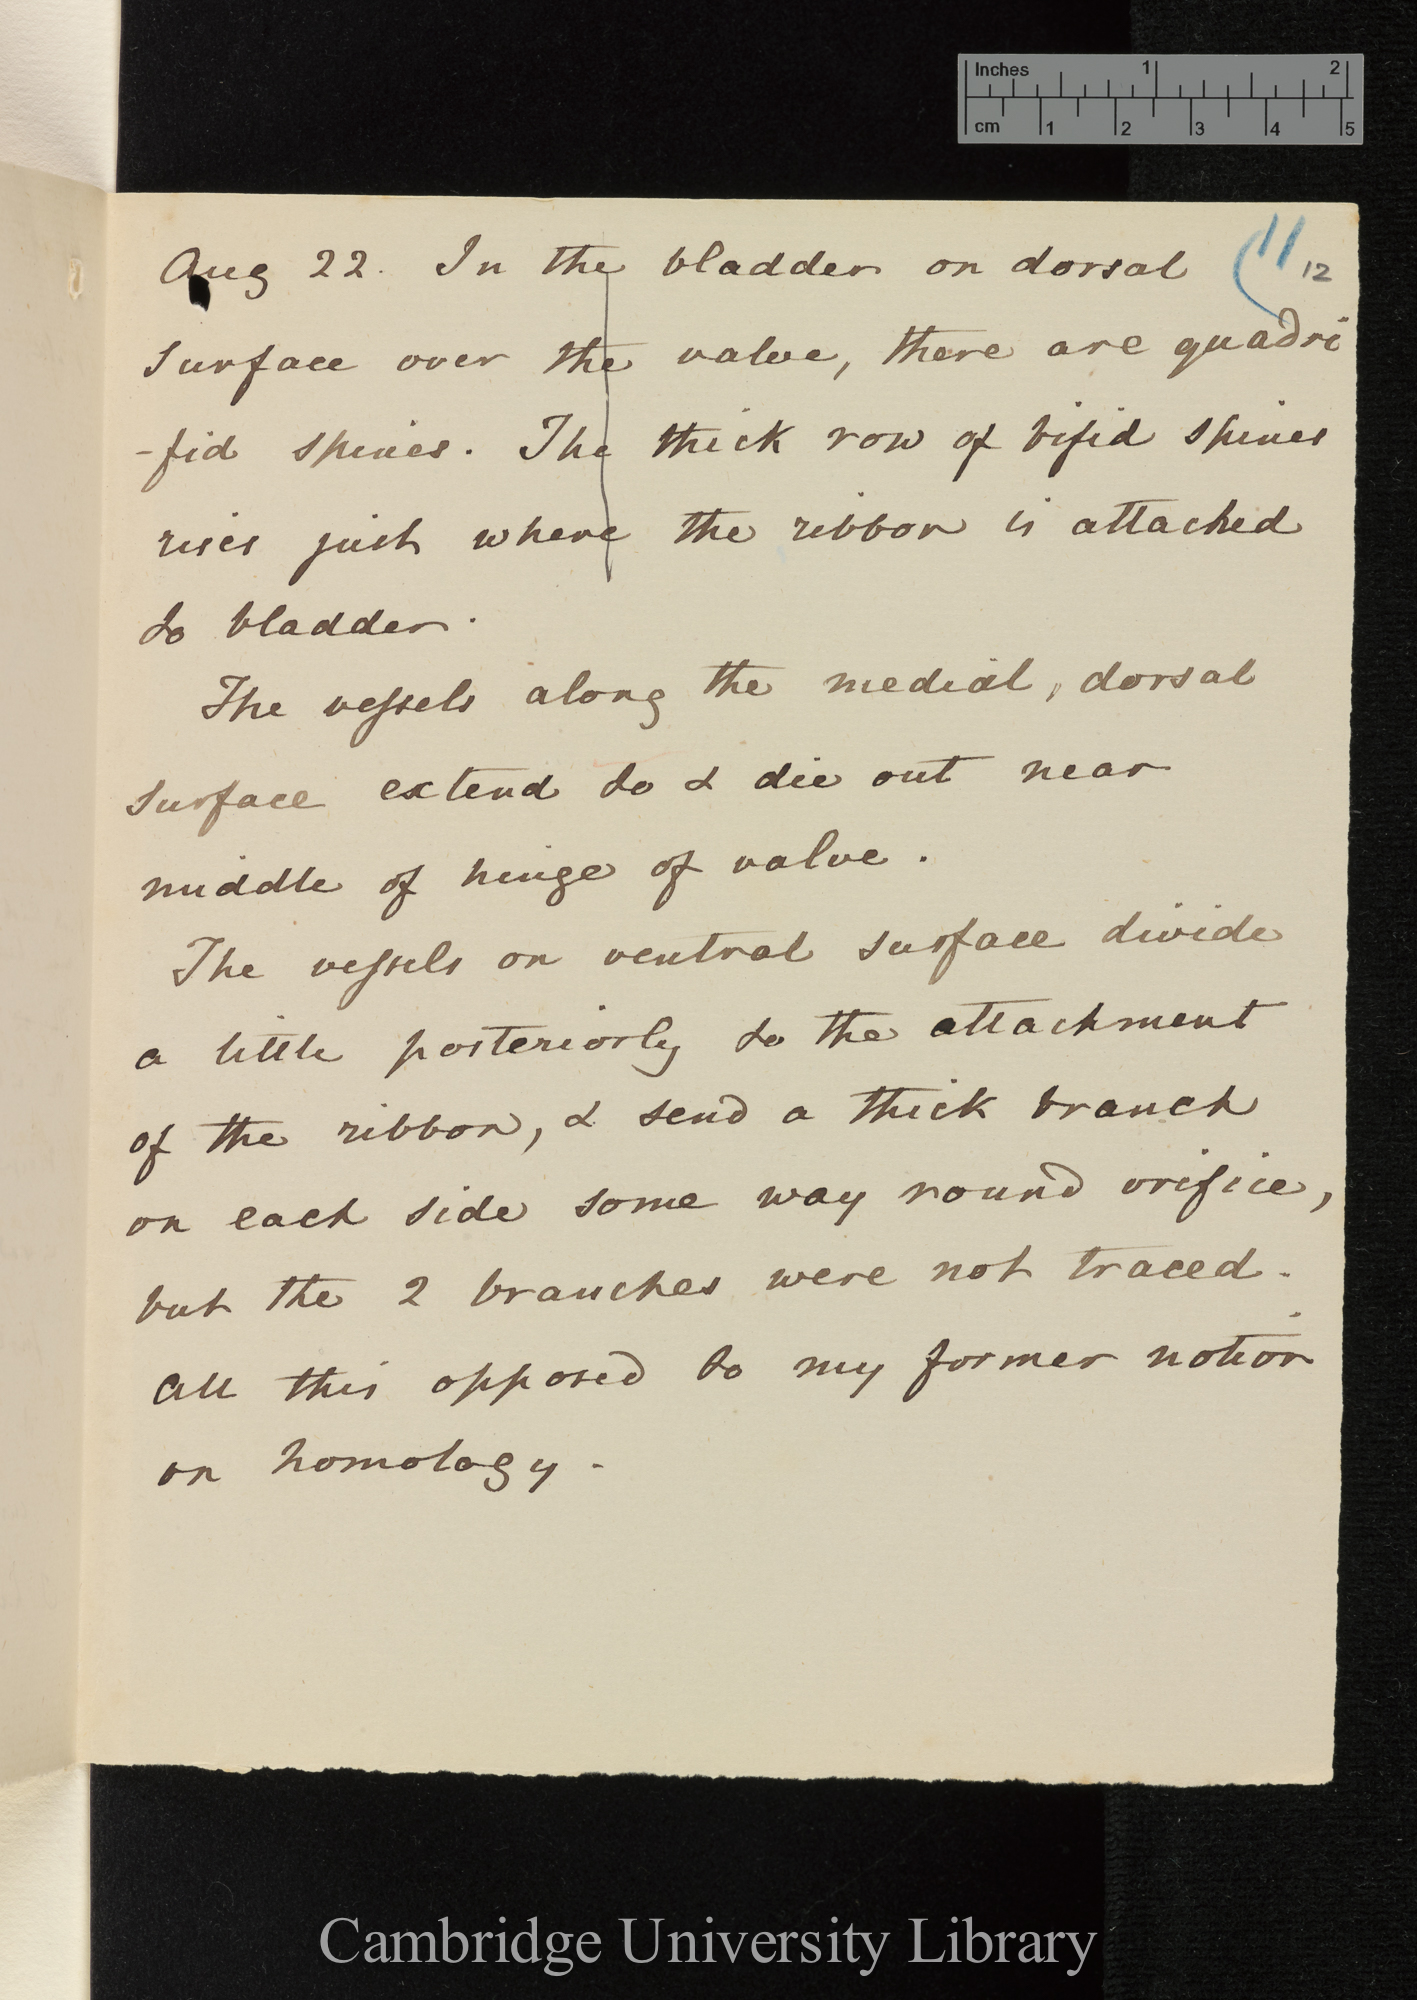 Inches 1 2
cm 1 2 3 4 5
(11 12
Aug 22. In the bladder on dorsal
surface over the valve, there are quadri
-fid spines. The thick row of bifid spines
rises just where the ribbon is attached
to bladder.
The vessels along the medial, dorsal
surface extend to & die out near
middle of hinge of valve.
The vessels on ventral surface divide
a little posteriorly to the attachment
of the ribbon, & send a thick branch
on each side some way round orifice,
but the 2 branches were not traced.
All this opposed to my former notion
on homology.
Cambridge University Library